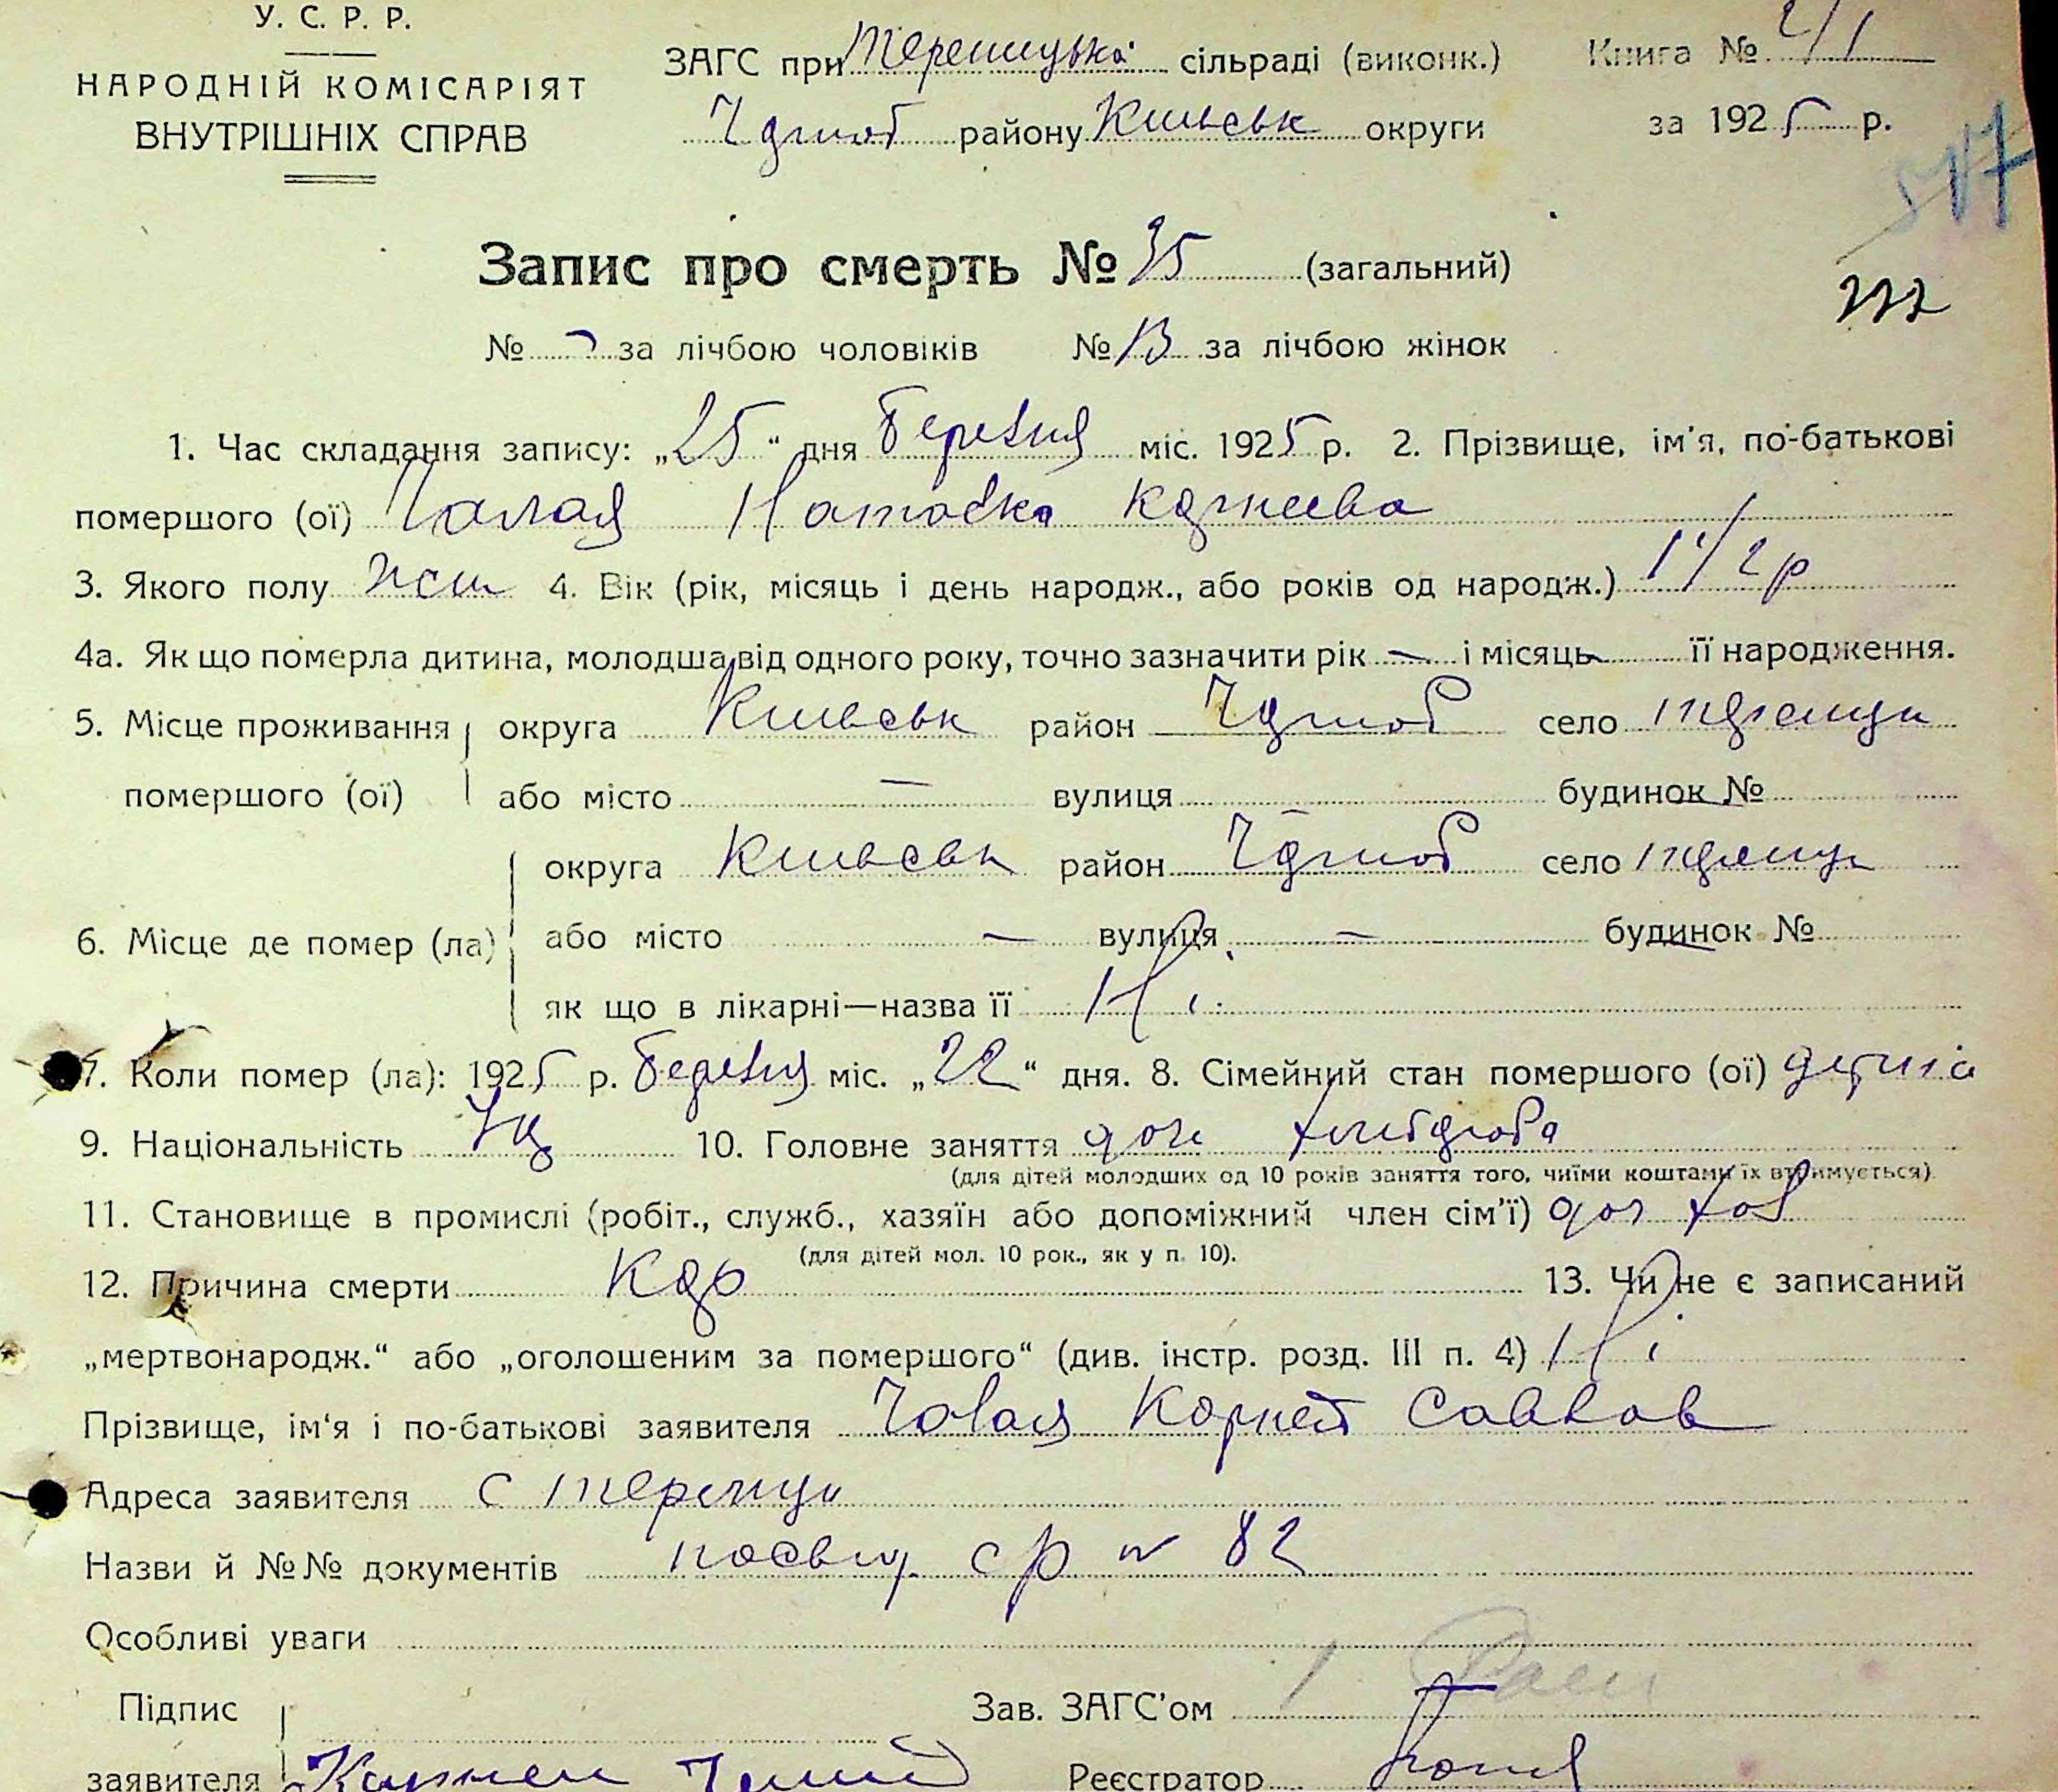 У. С. Р. Р.
НАРОДНІЙ КОМІСАРІЯТ
ВНУТРІШНІХ СПРАВ
ЗАГС при сільраді (виконк.)
району Київськ округи
Книга №
за 1925 р.
Запис про смерть № 35 (загальний)
222
№ за лічбою чоловіків № 13 за лічбою жінок
1. Час складання запису: „25“ дня березня міс. 1925 р. 2. Прізвище, ім'я, по-батькові
помершого (ої) Корнеева
3. Якого полу жін 4. Вік (рік, місяць і день народж., або років од народж.) 1 1/2 р
4а. Як що померла дитина, молодша від одного року, точно зазначити рік — і місяць — її народження.
5. Місце проживання округа Київськ район село
помершого (ої) або місто — вулиця будинок №
округа Київськ район село
6. Місце де помер (ла) або місто — вулиця — будинок №
як що в лікарні—назва її Ні
7. Коли помер (ла): 1925 р. березня міс. „22“ дня. 8. Сімейний стан помершого (ої) дитина
9. Національність Укр 10. Головне заняття доч хлібороба
(для дітей молодших од 10 років заняття того, чиїми коштами їх втримується)
11. Становище в промислі (робіт., служб., хазяїн або допоміжний член сім'ї) доч хоз
(для дітей мол. 10 рок., як у п. 10).
12. Причина смерти Кор 13. Чи не є записаний
„мертвонародж.“ або „оголошеним за помершого“ (див. інстр. розд. III п. 4) Ні
Прізвище, ім'я і по-батькові заявителя Корней Саввов
Адреса заявителя с
Назви й №№ документів посвід ср № 82
Особливі уваги
Підпис
заявителя Корней
Зав. ЗАГС'ом
Реєстратор